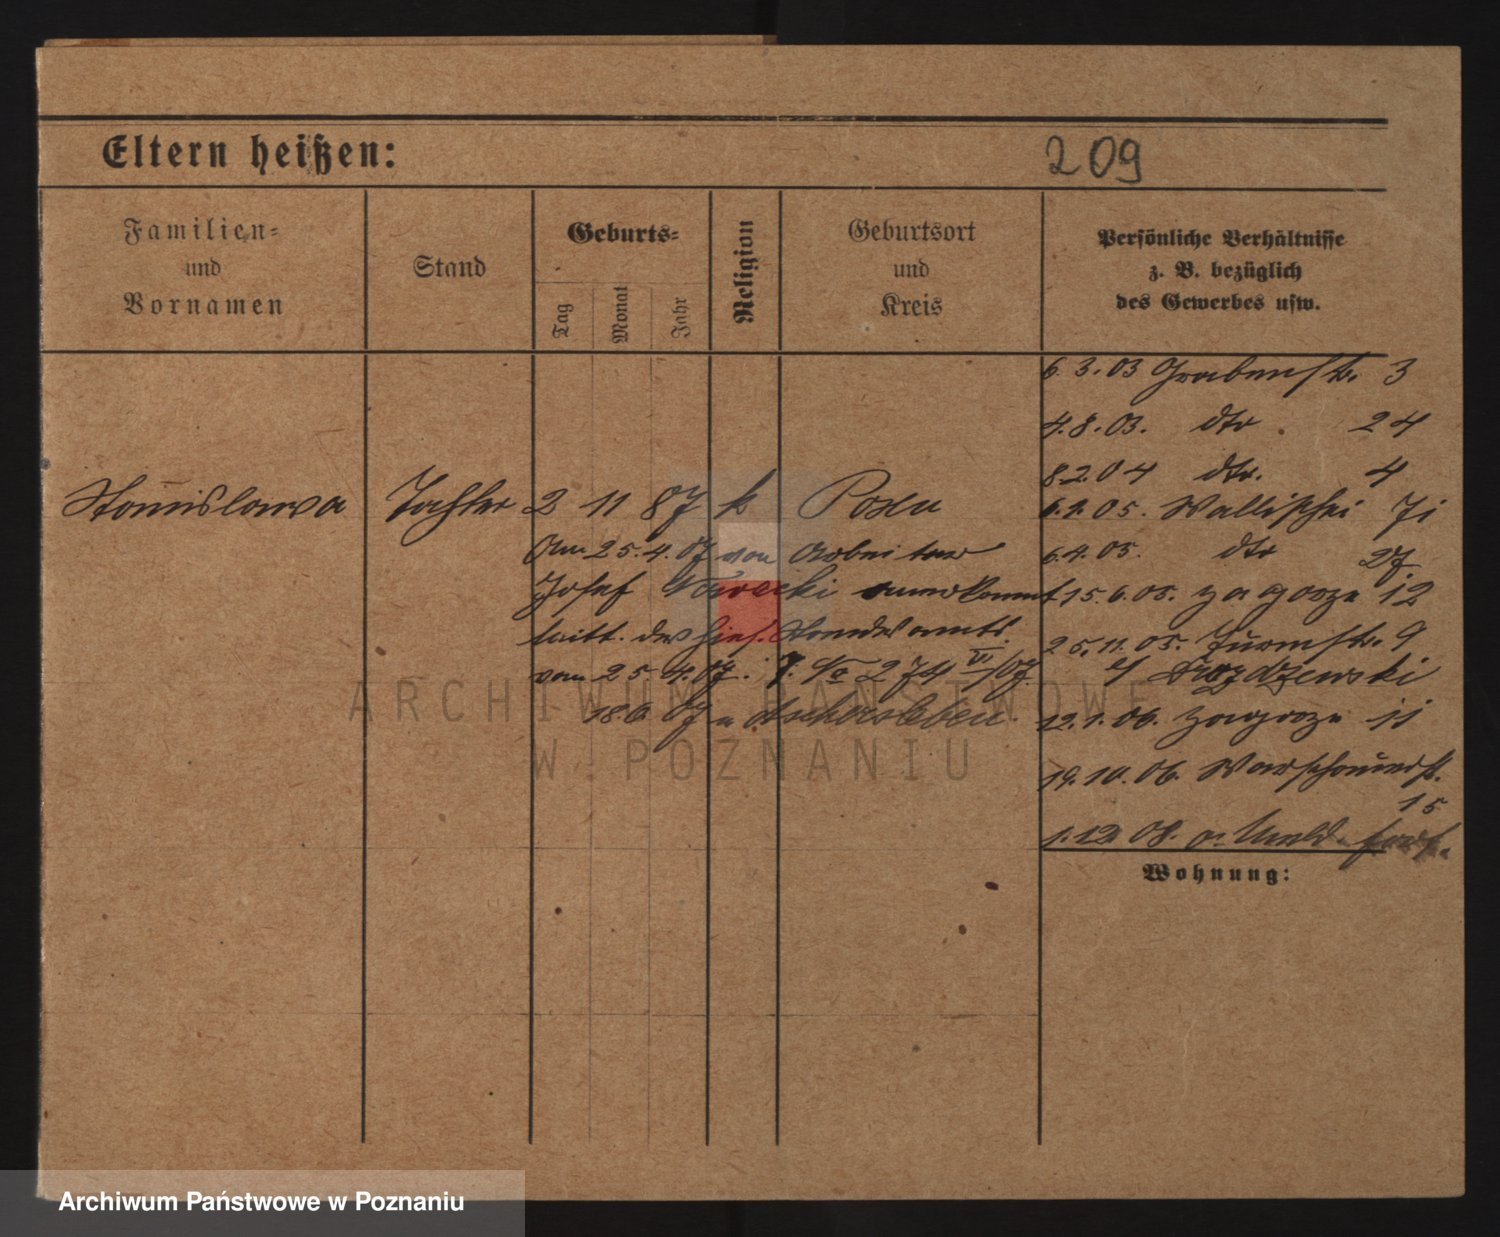 Eltern heißen:
209
Familien-
und
Vornamen
Stand
Geburts-
Tag
Monat
Jahr
Religion
Geburtsort
und
Kreis
Persönliche Verhältnisse
z. B. bezüglich
des Gewerbes usw.
6. 3. 03 Grabenstr. 3
4. 8. 03. dto. 24
8. 2. 04 dto. 4
Stanislawa Tochter 2 11 87 k Posen
6. 1. 05. Wallischei 71
Am 25. 4. 07 von Arbeiter
6. 4. 05. dto 27
Josef Nawrocki anerkannt
15. 6. 05. Zagorze 12
laut. des hies. Standesamts.
25. 11. 05. Turmstr. 9
vom 25. 4. 07. J. No 274 VI/07
b/ Drozdzewski
18. 6. 07 n Aschersleben.
12. 1. 06. Zagorze 11
19. 10. 06. Warschauerst.
15
1. 12. 08. o. Umld. fort.
Wohnung:
ARCHIWUM PAŃSTWOWE
W POZNANIU
Archiwum Państwowe w Poznaniu